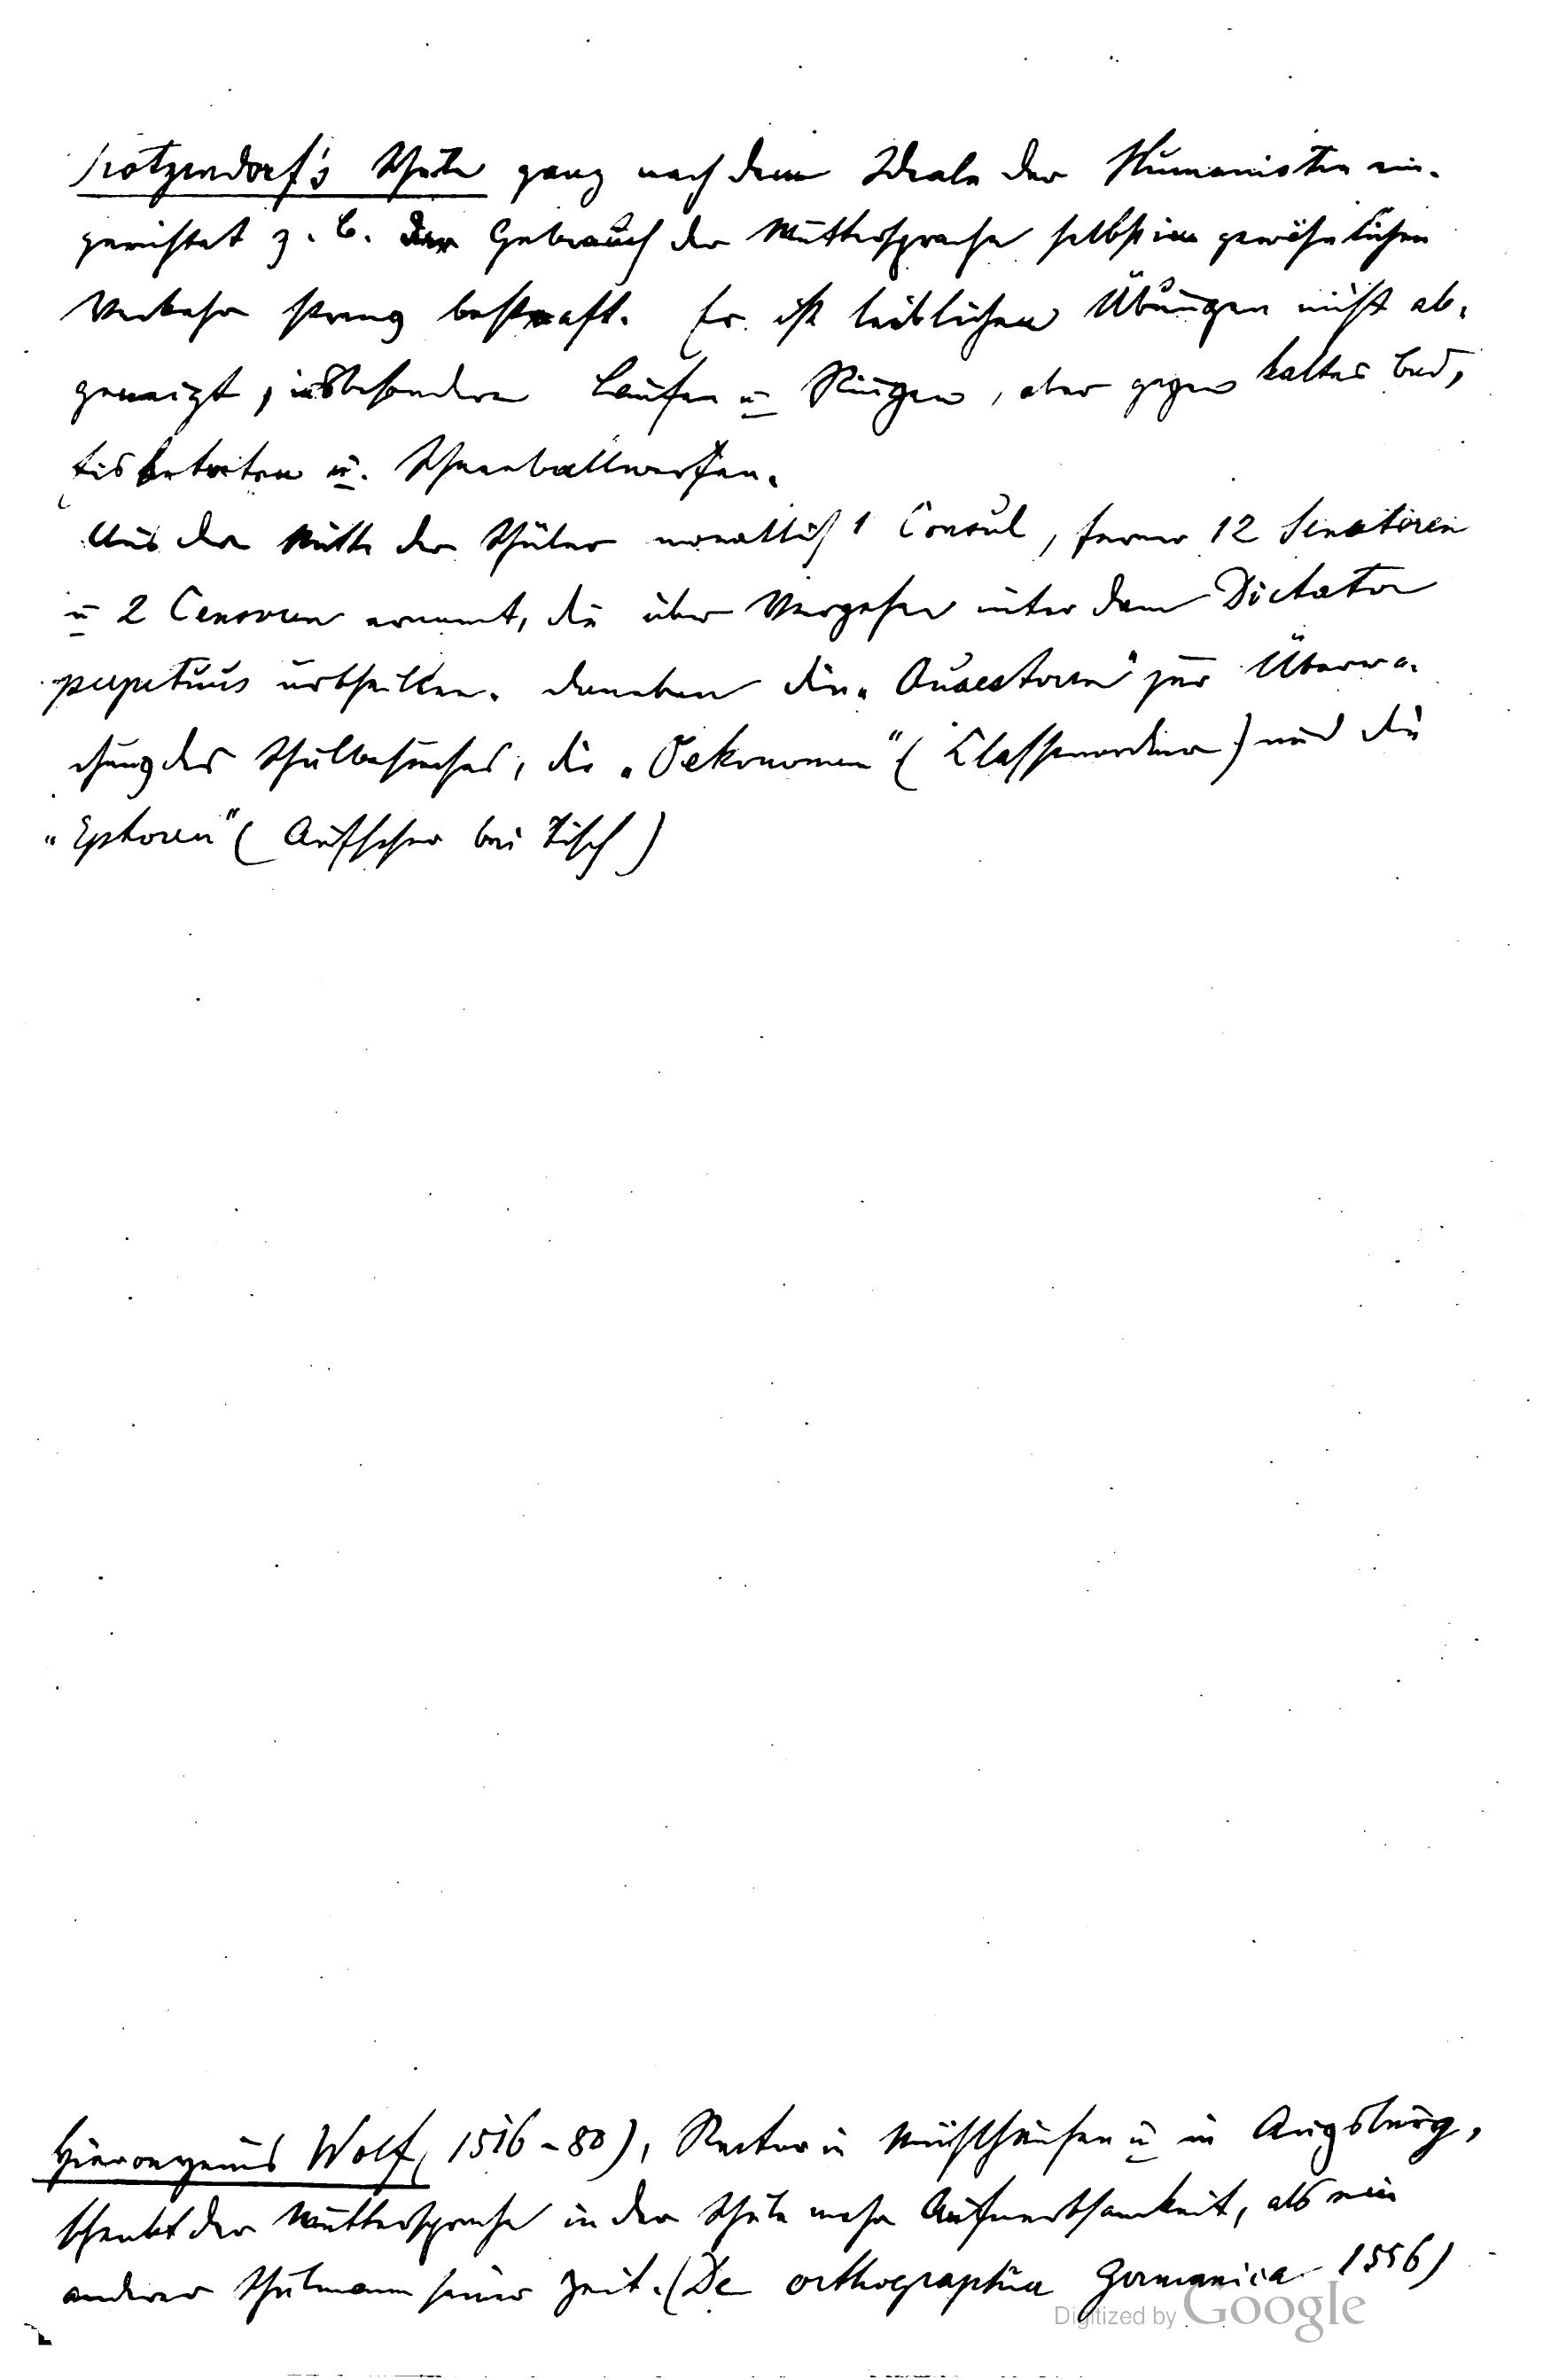 Trotzendorf's Schule ganz nach dem Ideale der Humanisten ein-
gerichtet z. B. der Gebrauch der Muttersprache selbst im gewöhnlichen
Verkehr streng bestraft. Er ist leiblichen Übungen nicht ab-
geneigt, insbesondere Laufen u Ringen, aber gegen kaltes Bad,
Eisbetreten u. Schneeballwerfen.
Aus der Mitte der Schüler monatlich 1 Consul, ferner 12 Senatoren
u 2 Censoren ernannt, die über Vergehen unter dem Dictator
perpetuus urtheilten. daneben die „Quaestoren" zur Überwa-
chung des Schulbesuches, die „Oekonomen" (Classenordner) und die
„Ephoren" (Aufseher bei Tisch)
Hieronymus Wolf (1516-80), Rector in Mühlhausen u in Augsburg,
schenkt der Muttersprache in der Schule mehr Aufmerksamkeit, als ein
anderer Schulmann seiner Zeit. (De orthographia Germanica 1556)
Digitized by Google